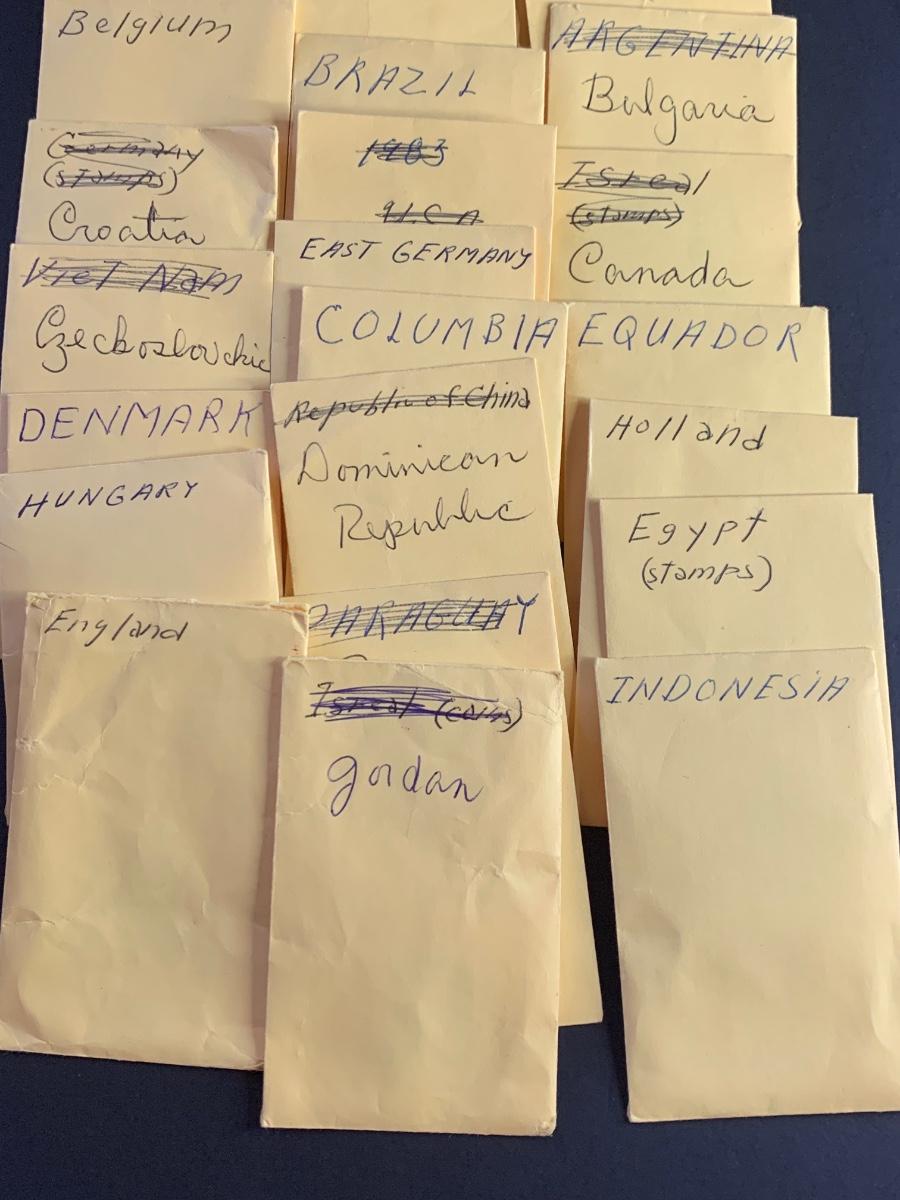 Belgium
BRAZIL
ARGENTINA
Bulgaria
Germany
(stamps)
Croatia
1983
U.S.A
Isreal
(stamps)
Canada
Viet Nam
Czeckoslovckic
EAST GERMANY
COLUMBIA
EQUADOR
DENMARK
Republic of China
Dominican
Republic
Holland
HUNGARY
Egypt
(stamps)
England
PARAGUAY
Isreal (coins)
Jordan
INDONESIA